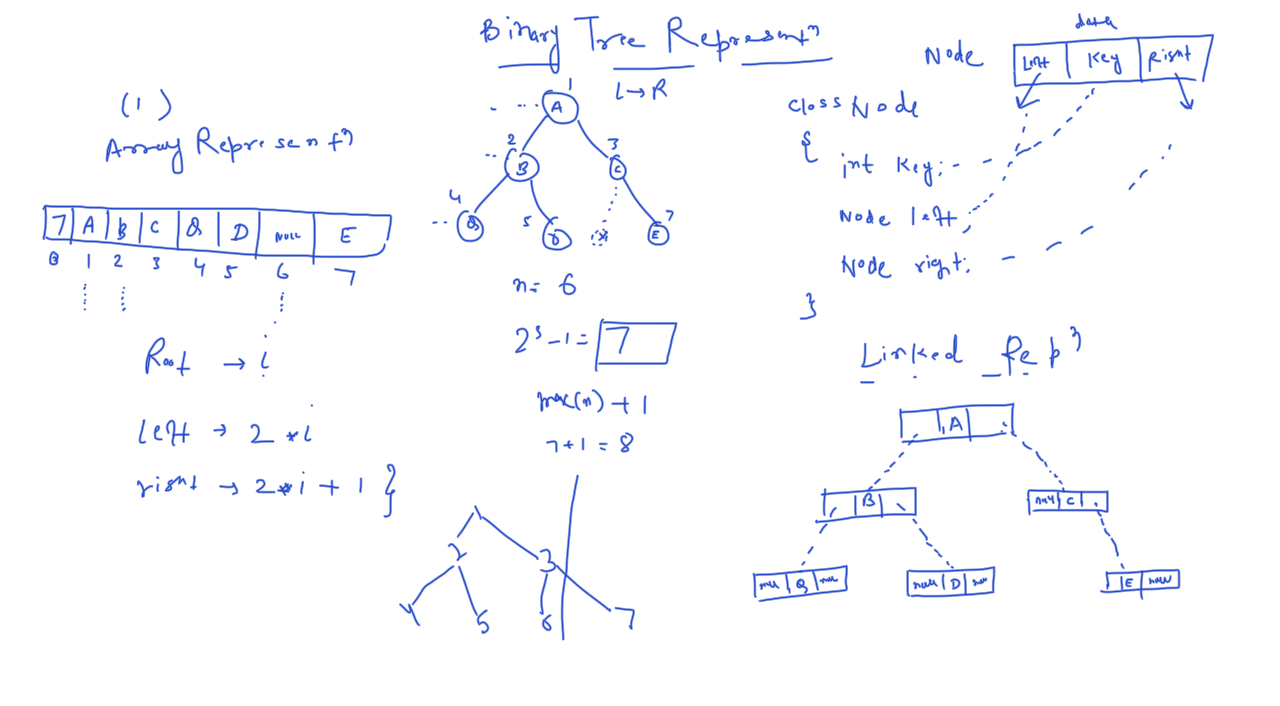 Binary Tree Represent^n
L→R
(1)
Array Represent^n
7 A B C Q D NULL E
0 1 2 3 4 5 6 7
Root → i
left → 2 * i
right → 2 * i + 1 }
1
A
2
B
3
C
4
Q
5
D
7
E
n = 6
2^3 - 1 = 7
max(n) + 1
7 + 1 = 8
1
2 3
4 5 6 7
data
Node
Left Key Right
class Node
{
int key;
Node left;
Node right;
}
Linked Rep^n
A
B
null C
null Q null
null D null
E null